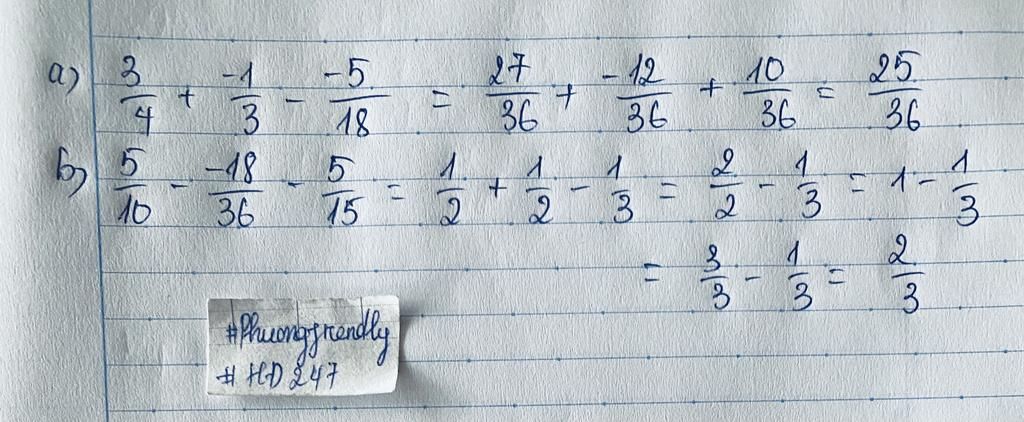 a) 3/4 + -1/3 - -5/18 = 27/36 + -12/36 + 10/36 = 25/36
b) 5/10 - -18/36 - 5/15 = 1/2 + 1/2 - 1/3 = 2/2 - 1/3 = 1 - 1/3
= 3/3 - 1/3 = 2/3
#Phuongfrendly
#HD247